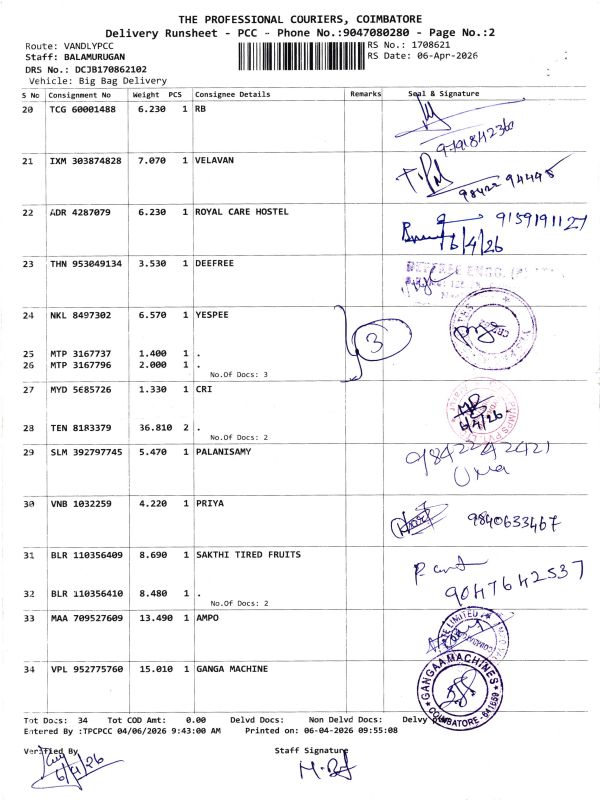 THE PROFESSIONAL COURIERS, COIMBATORE
Delivery Runsheet - PCC - Phone No.:9047080280 - Page No.:2
Route: VANDLYPCC RS No.: 1708621
Staff: BALAMURUGAN RS Date: 06-Apr-2026
DRS No.: DCJB170862102
Vehicle: Big Bag Delivery
S No Consignment No Weight PCS Consignee Details Remarks Seal & Signature
20 TCG 60001488 6.230 1 RB
21 IXM 303874828 7.070 1 VELAVAN
98422 94445
22 ADR 4287079 6.230 1 ROYAL CARE HOSTEL
9159191127
6/4/26
23 THN 953049134 3.530 1 DEEFREE
24 NKL 8497302 6.570 1 YESPEE
3
25 MTP 3167737 1.400 1 .
26 MTP 3167796 2.000 1 .
No.Of Docs: 3
27 MYD 5685726 1.330 1 CRI
6/4/26
28 TEN 8183379 36.810 2 .
No.Of Docs: 2
29 SLM 392797745 5.470 1 PALANISAMY
9842242421
Uma
30 VNB 1032259 4.220 1 PRIYA
9840633467
31 BLR 110356409 8.690 1 SAKTHI TIRED FRUITS
9047642537
32 BLR 110356410 8.480 1 .
No.Of Docs: 2
33 MAA 709527609 13.490 1 AMPO
34 VPL 952775760 15.010 1 GANGA MACHINE
GANGAA MACHINES
COIMBATORE - 641659
Tot Docs: 34 Tot COD Amt: 0.00 Delvd Docs: Non Delvd Docs:
Entered By :TPCPCC 04/06/2026 9:43:00 AM Printed on: 06-04-2026 09:55:08
Verified By Staff Signature
6/4/26